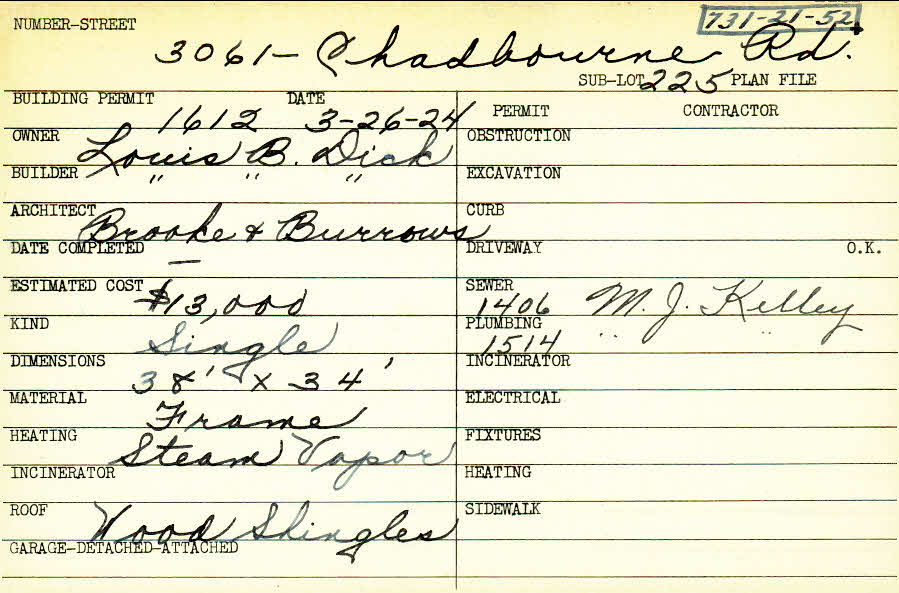 731-21-52
NUMBER-STREET
3061- Chadbourne Rd.
SUB-LOT 225 PLAN FILE
BUILDING PERMIT DATE
1612 3-26-24
PERMIT CONTRACTOR
OWNER Louis B. Dick
OBSTRUCTION
BUILDER " " "
EXCAVATION
ARCHITECT Brooke & Burrows
CURB
DATE COMPLETED —
DRIVEWAY O.K.
ESTIMATED COST $13,000
SEWER 1406 M. J. Kelley
KIND Single
PLUMBING 1514 " "
DIMENSIONS 38' x 34'
INCINERATOR
MATERIAL Frame
ELECTRICAL
HEATING Steam Vapor
FIXTURES
INCINERATOR
HEATING
ROOF Wood Shingles
SIDEWALK
GARAGE-DETACHED-ATTACHED